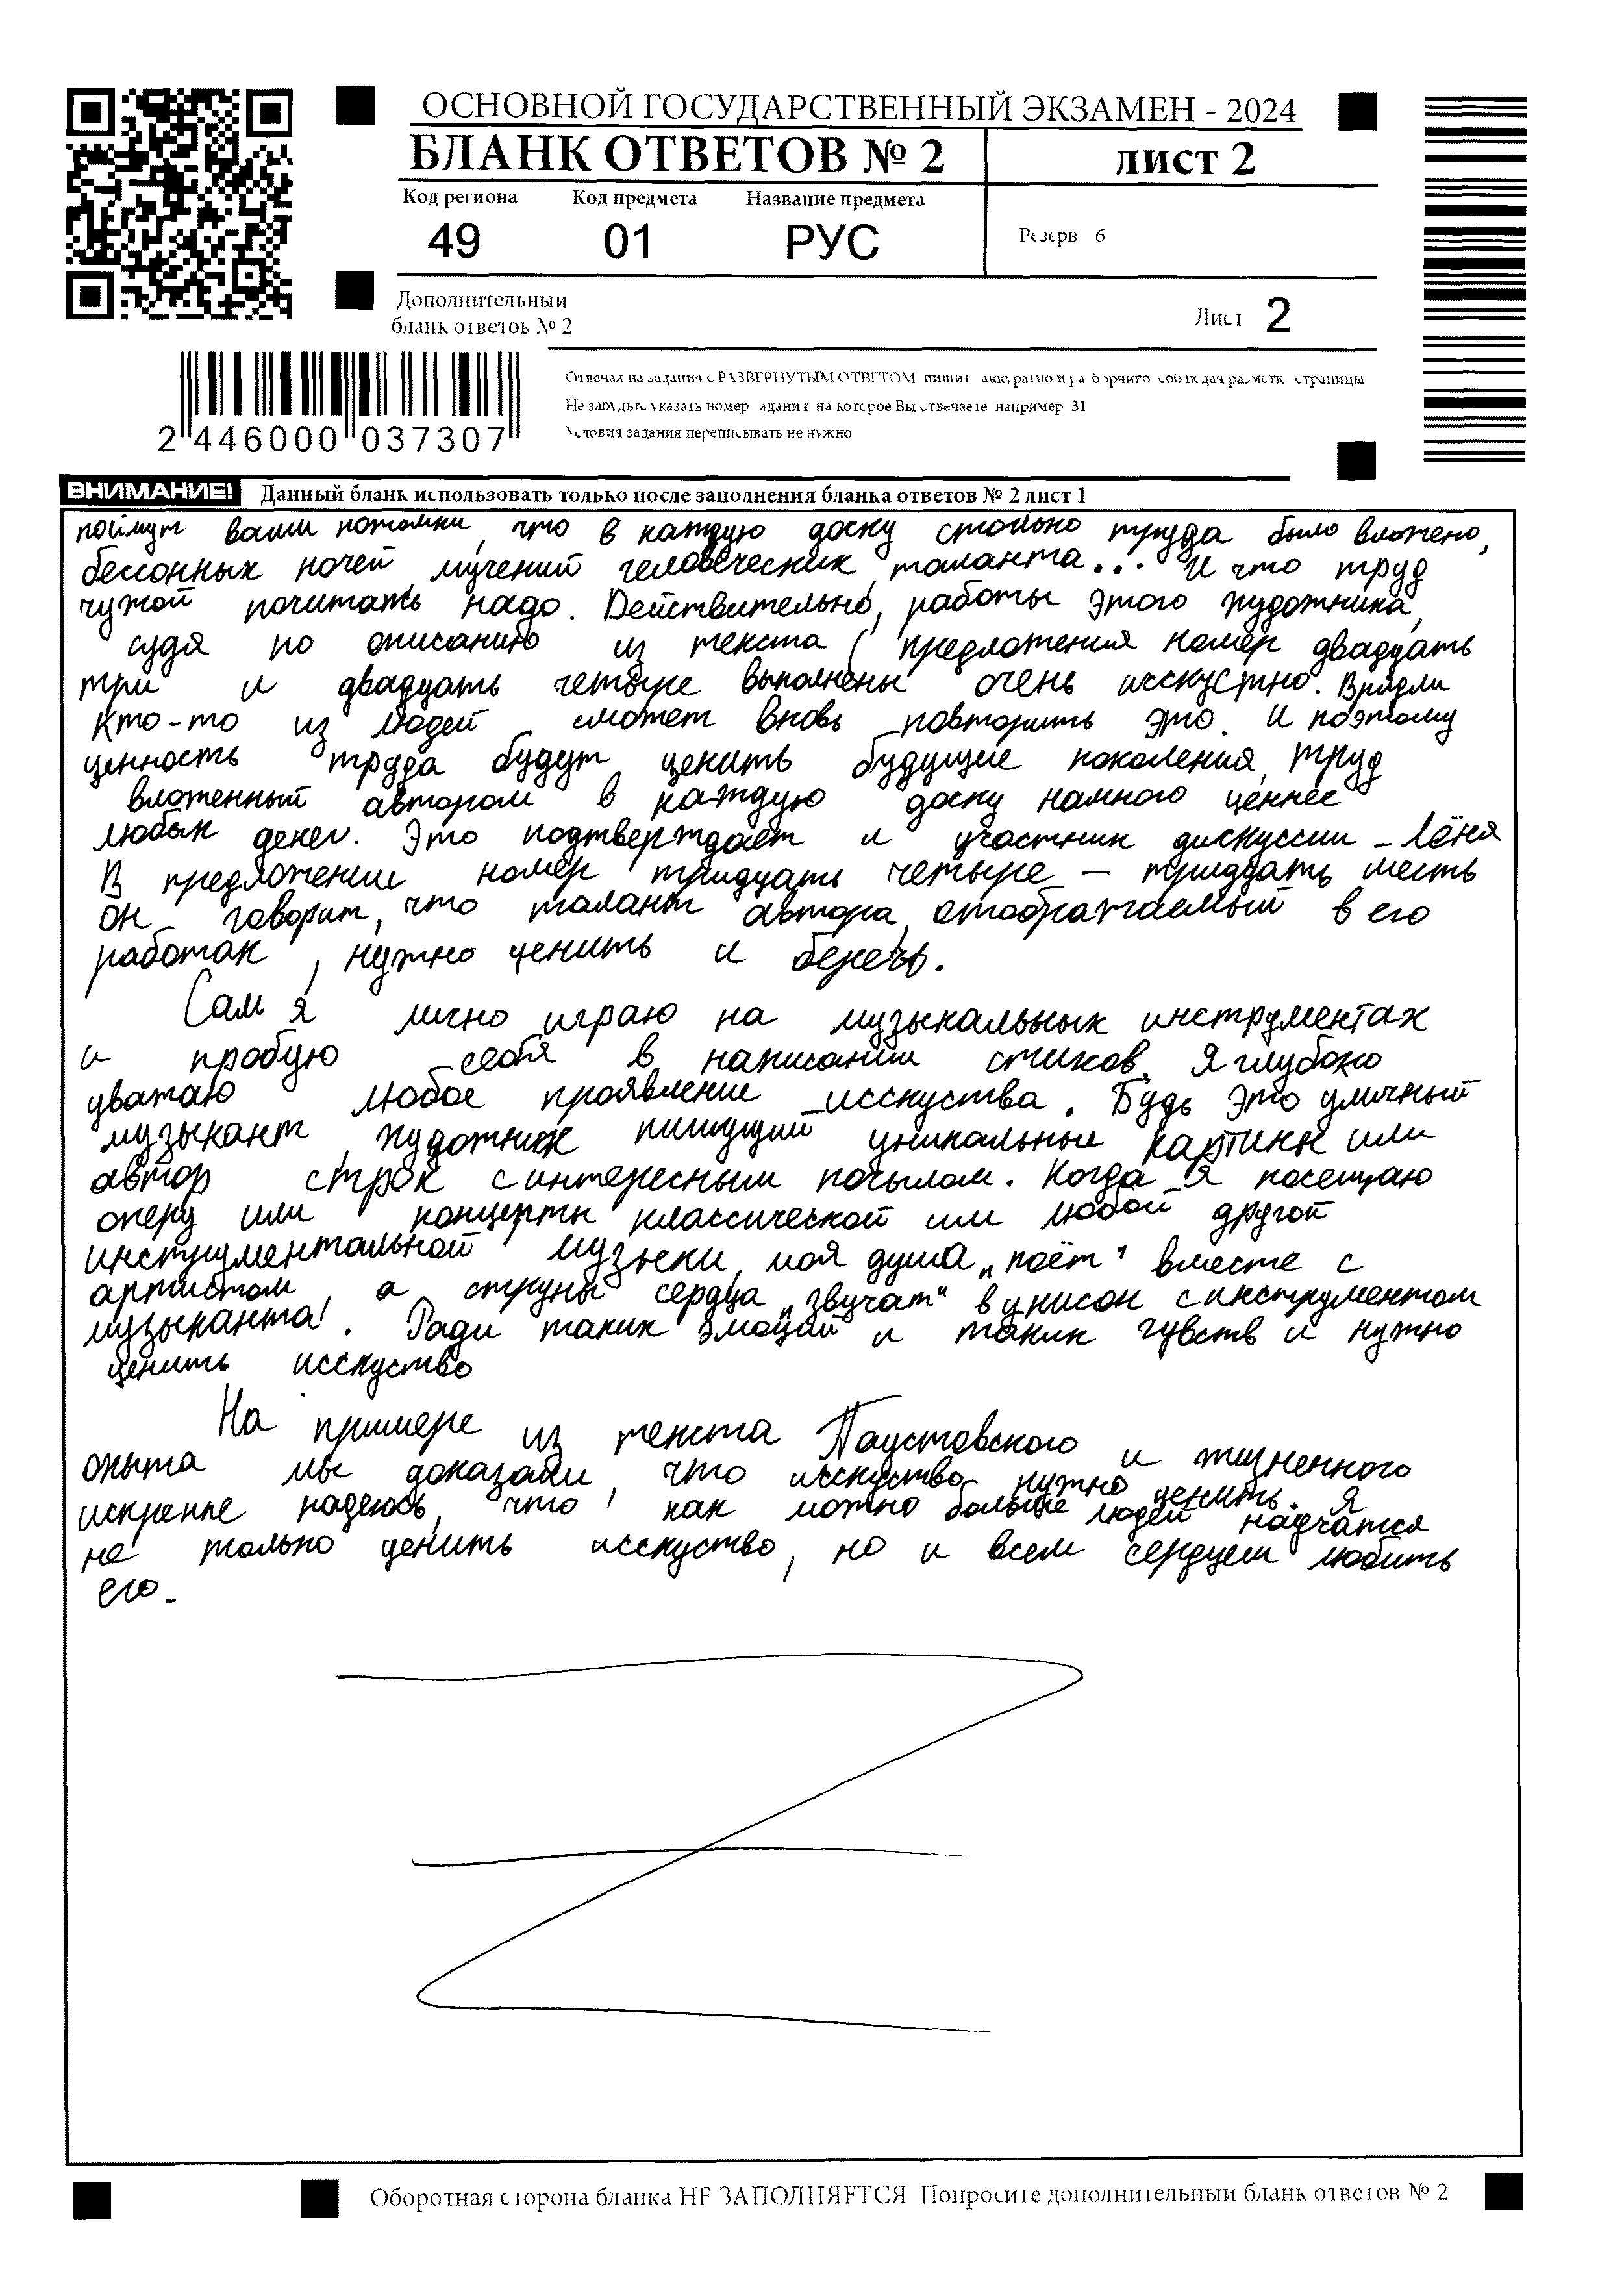 ОСНОВНОЙ ГОСУДАРСТВЕННЫЙ ЭКЗАМЕН - 2024
БЛАНК ОТВЕТОВ № 2
ЛИСТ 2
Код региона Код предмета Название предмета
49 01 РУС
Резерв 6
Дополнительный
бланк ответов № 2
Лист 2
Отвечая на задания с РАЗВЕРНУТЫМ ОТВЕТОМ пишите аккуратно и разборчиво соблюдая разметку страницы
Не забудьте указать номер задания на которое Вы отвечаете например 31
Условия задания переписывать не нужно
2 446000 037307
ВНИМАНИЕ! Данный бланк использовать только после заполнения бланка ответов № 2 лист 1
поймут ваши потомки, что в каждую доску столько труда было вложено,
бессонных ночей, мучений человеческих, таланта... И что труд
чужой почитать надо. Действительно, работы этого художника,
судя по описанию из текста ( предложения номер двадцать
три и двадцать четыре выполнены очень исскустно. Врядли
кто-то из людей сможет вновь повторить это. И поэтому
ценность труда будут ценить будущие поколения, труд
вложенный автором в каждую доску намного ценнее
любых денег. Это подтверждает и участник дискуссии - Лёня
В предложении номер тридцать четыре – тридцать шесть
он говорит, что талант автора, отображаемый в его
работах, нужно ценить и беречь.
Сам я лично играю на музыкальных инструментах
и пробую себя в написании стихов. Я глубоко
уважаю любое проявление исскуства. Будь это уличный
музыкант, художник пишущий уникальные картины или
автор строк с интересным посылом. Когда я посещаю
оперу или концерты классической или любой другой
инструментальной музыки, моя душа „поёт" вместе с
артистом, а струны сердца „звучат" в унисон с инструментом
музыканта!. Ради таких эмоций и таких чувств и нужно
ценить исскуство
На примере из текста Паустовского и жизненного
опыта мы доказали, что исскуство нужно ценить. Я
искренне надеюсь, что как можно больше людей научатся
не только ценить исскуство, но и всем сердцем любить
его.
Оборотная сторона бланка НЕ ЗАПОЛНЯЕТСЯ Попросите дополнительный бланк ответов № 2